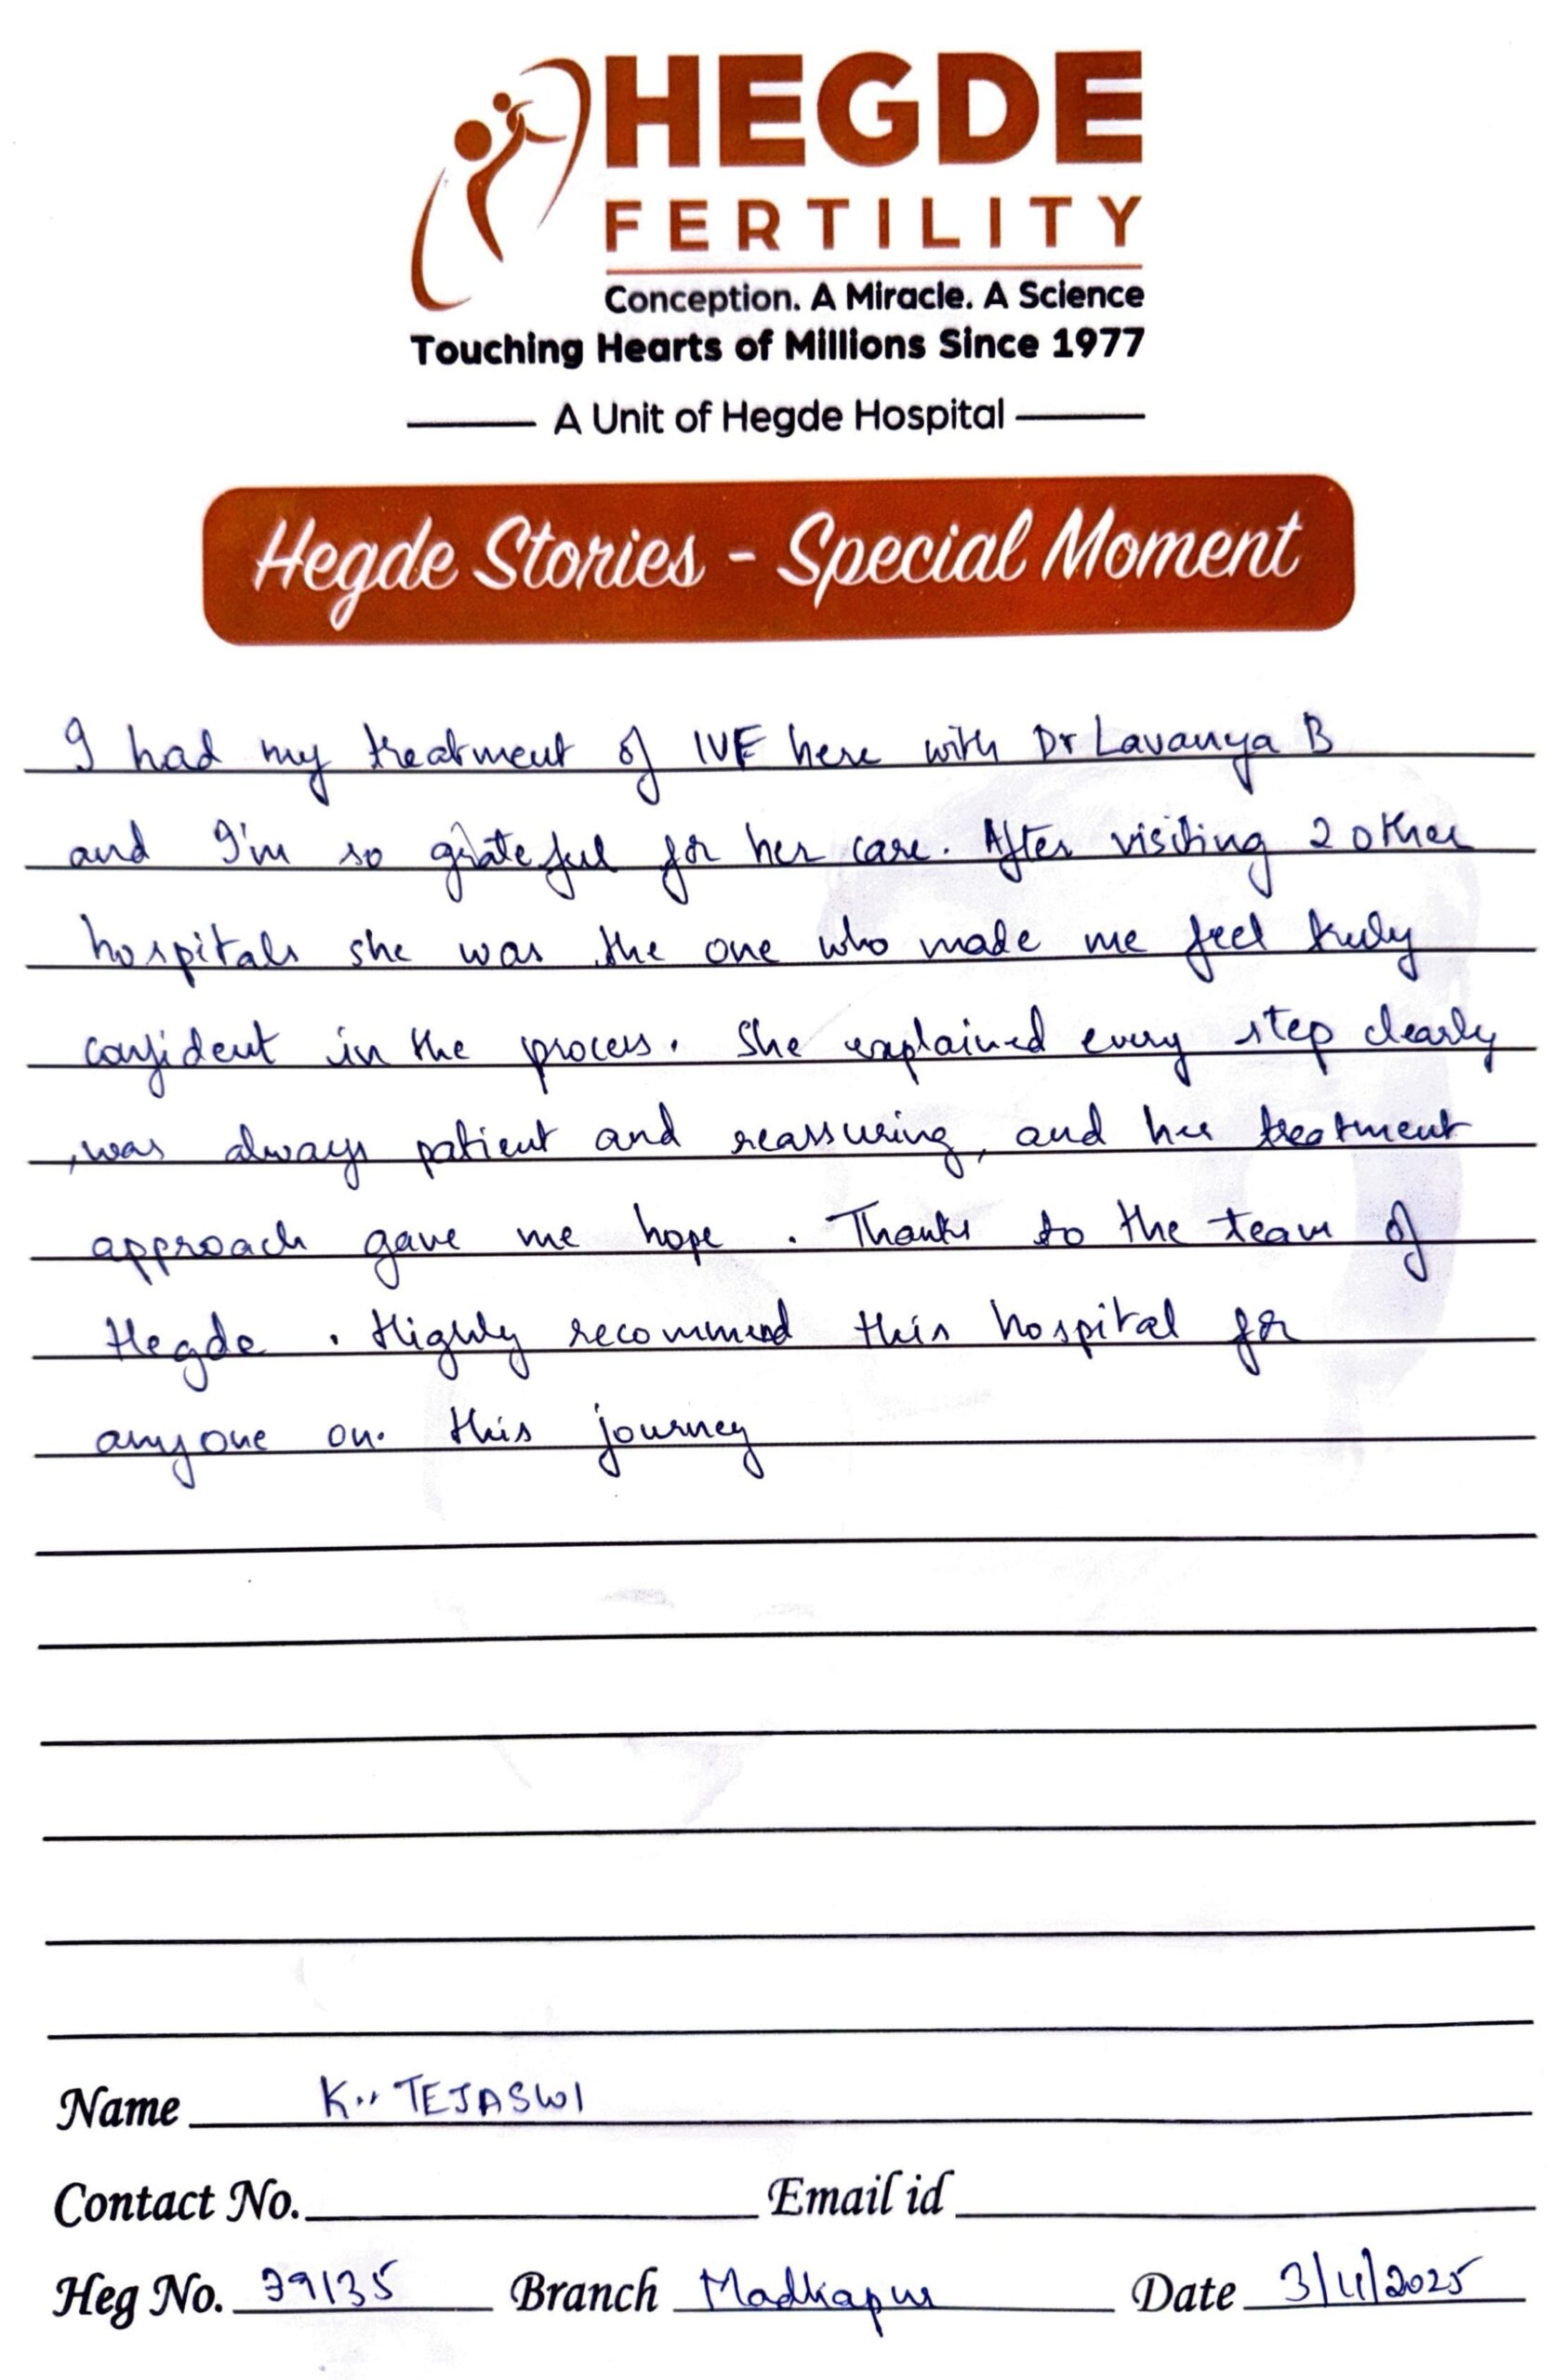 HEGDE
FERTILITY
Conception. A Miracle. A Science
Touching Hearts of Millions Since 1977
A Unit of Hegde Hospital
Hegde Stories - Special Moment
I had my treatment of IVF here with Dr Lavanya B
and I'm so grateful for her care. After visiting 2 other
hospitals she was the one who made me feel truly
confident in the process. She explained every step clearly
, was always patient and reassuring, and her treatment
approach gave me hope. Thanks to the team of
Hegde. Highly recommend this hospital for
anyone on. this journey
Name K.. TEJASWI
Contact No. Email id
Heg No. 39135 Branch Madhapur Date 3/11/2025